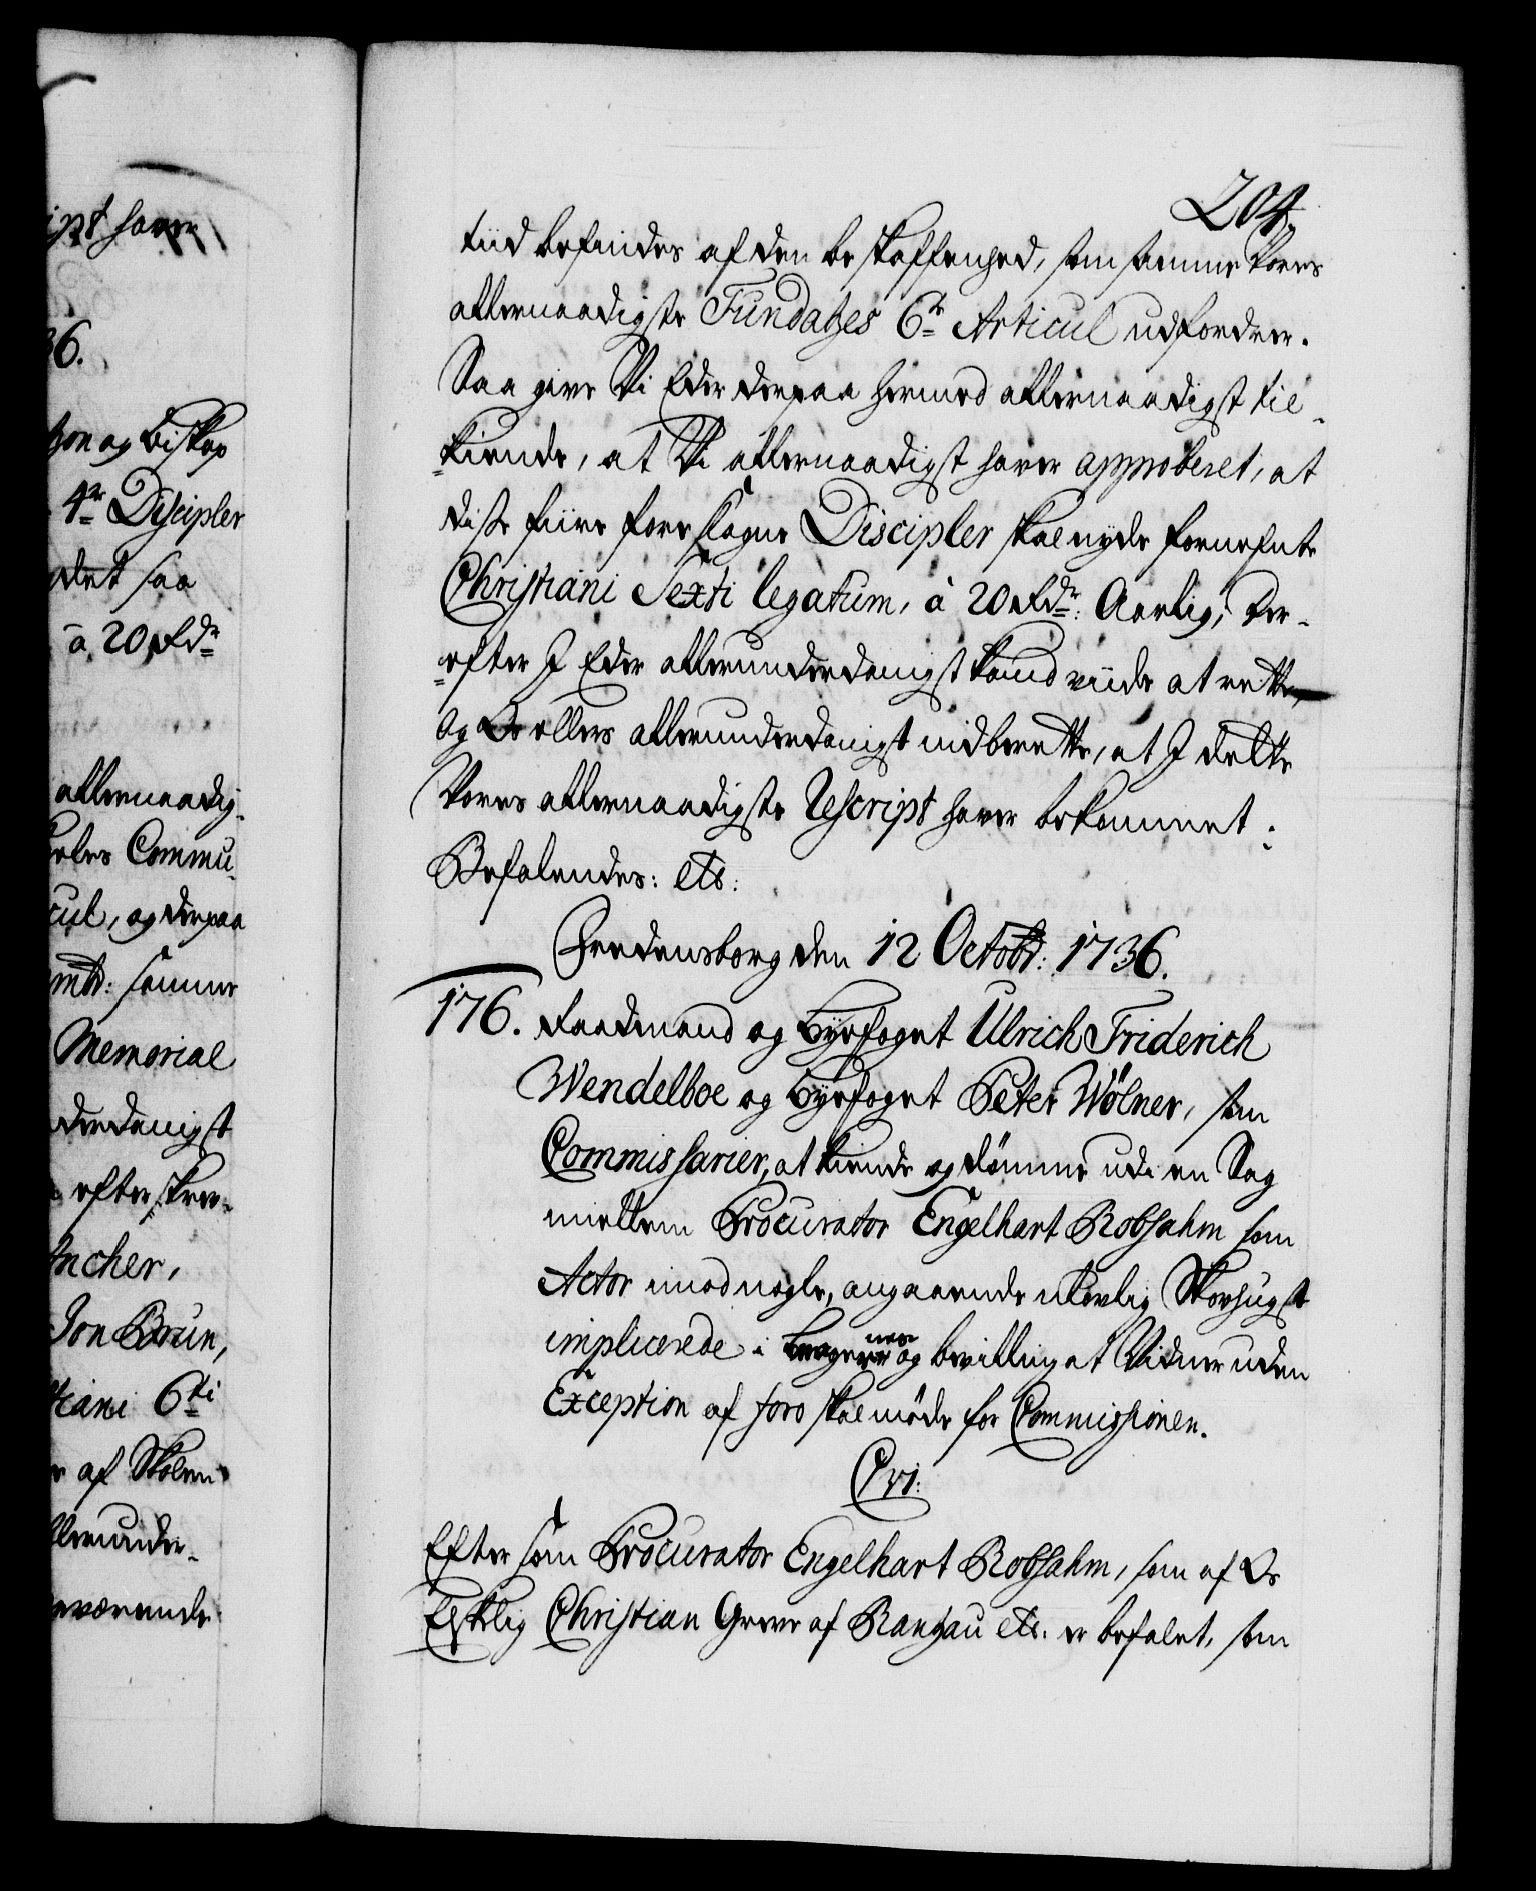 ipt haver
36.
hon og Biskop
4re Discipler
det saa
à 20 Rdr
allernaadig-
holes Commu-
cul, og derpaa
samme
Memorial
derdanigst
efterskrev-
Ancher,
Jon Brun,
tiani 6ti
af Skolen
llerunder-
nærværende
204.
tiid befindes af den beskaffenhed, som samme Vores
allernaadigste Fundatzes 6te Articul udfordrer.
Saa give Vi Eder derpaa hermed allernaadigst til-
kiende, at Vi allernaadigst haver approberet, at
disse fiire foreslagne Discipler skal nyde fornefnte
Christiani Sexti legatum, à 20 Rdr: Aarlig; Der-
efter I Eder allerunderdanigst kand viide at rette,
og Os ellers allerunderdanigst indberette, at I dette
Vores allernaadigste Rescript haver bekommet:
Befalendes: etc:
Fredensborg den 12 Octobr: 1736.
176. Raadmand og Byefoget Ulrich Friderich
Wendelboe og Byefoget Peter Wölner, som
Commissarier, at kiende og dömme udi en Sag
mellem Procurator Engelhart Robsahm som
Actor imod nogle, angaaende ulovlig Skovhugst
implicerede i og bevilling at Vidner uden
Exception af foro skal møde for Commissionen.
Cvi:
Eftersom Procurator Engelhart Robsahm, som af Os
Elskelig Christian Greve af Rantzau etc. er befalet, som